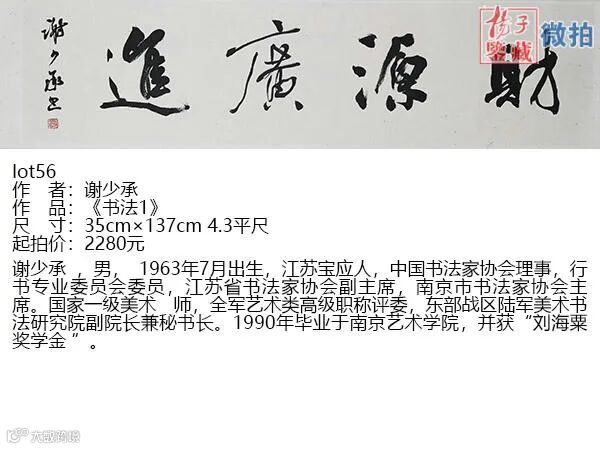 財源廣進
谢少承书
揚子鑒藏
微拍
lot56
作 者：谢少承
作 品：《书法1》
尺 寸：35cm×137cm 4.3平尺
起拍价：2280元
谢少承 ，男， 1963年7月出生，江苏宝应人，中国书法家协会理事，行
书专业委员会委员，江苏省书法家协会副主席，南京市书法家协会主
席。国家一级美术 师，全军艺术类高级职称评委，东部战区陆军美术书
法研究院副院长兼秘书长。1990年毕业于南京艺术学院，并获“刘海粟
奖学金 ”。
大数跨境